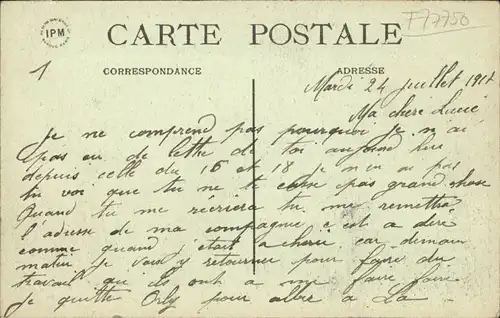 IPM
F17750
CARTE POSTALE
CORRESPONDANCE
ADRESSE
1
Mardi 24 juillet 191
Ma chere Lucie
Je ne comprend pas pourquoi je n ai
pas eu de lettre de toi aujourd hui
depuis celle du 15 et 18 je n en ai pas
tu voi que tu ne te casse pas grand chose
Quand tu me réécriera tu me remettra
l'adresse de ma compagnie c est a dire
comme quand j étais a car demain
matin je vais y retourner pour faire du
travail qu ils ont a me faire faire
je quitte Orly pour aller a La